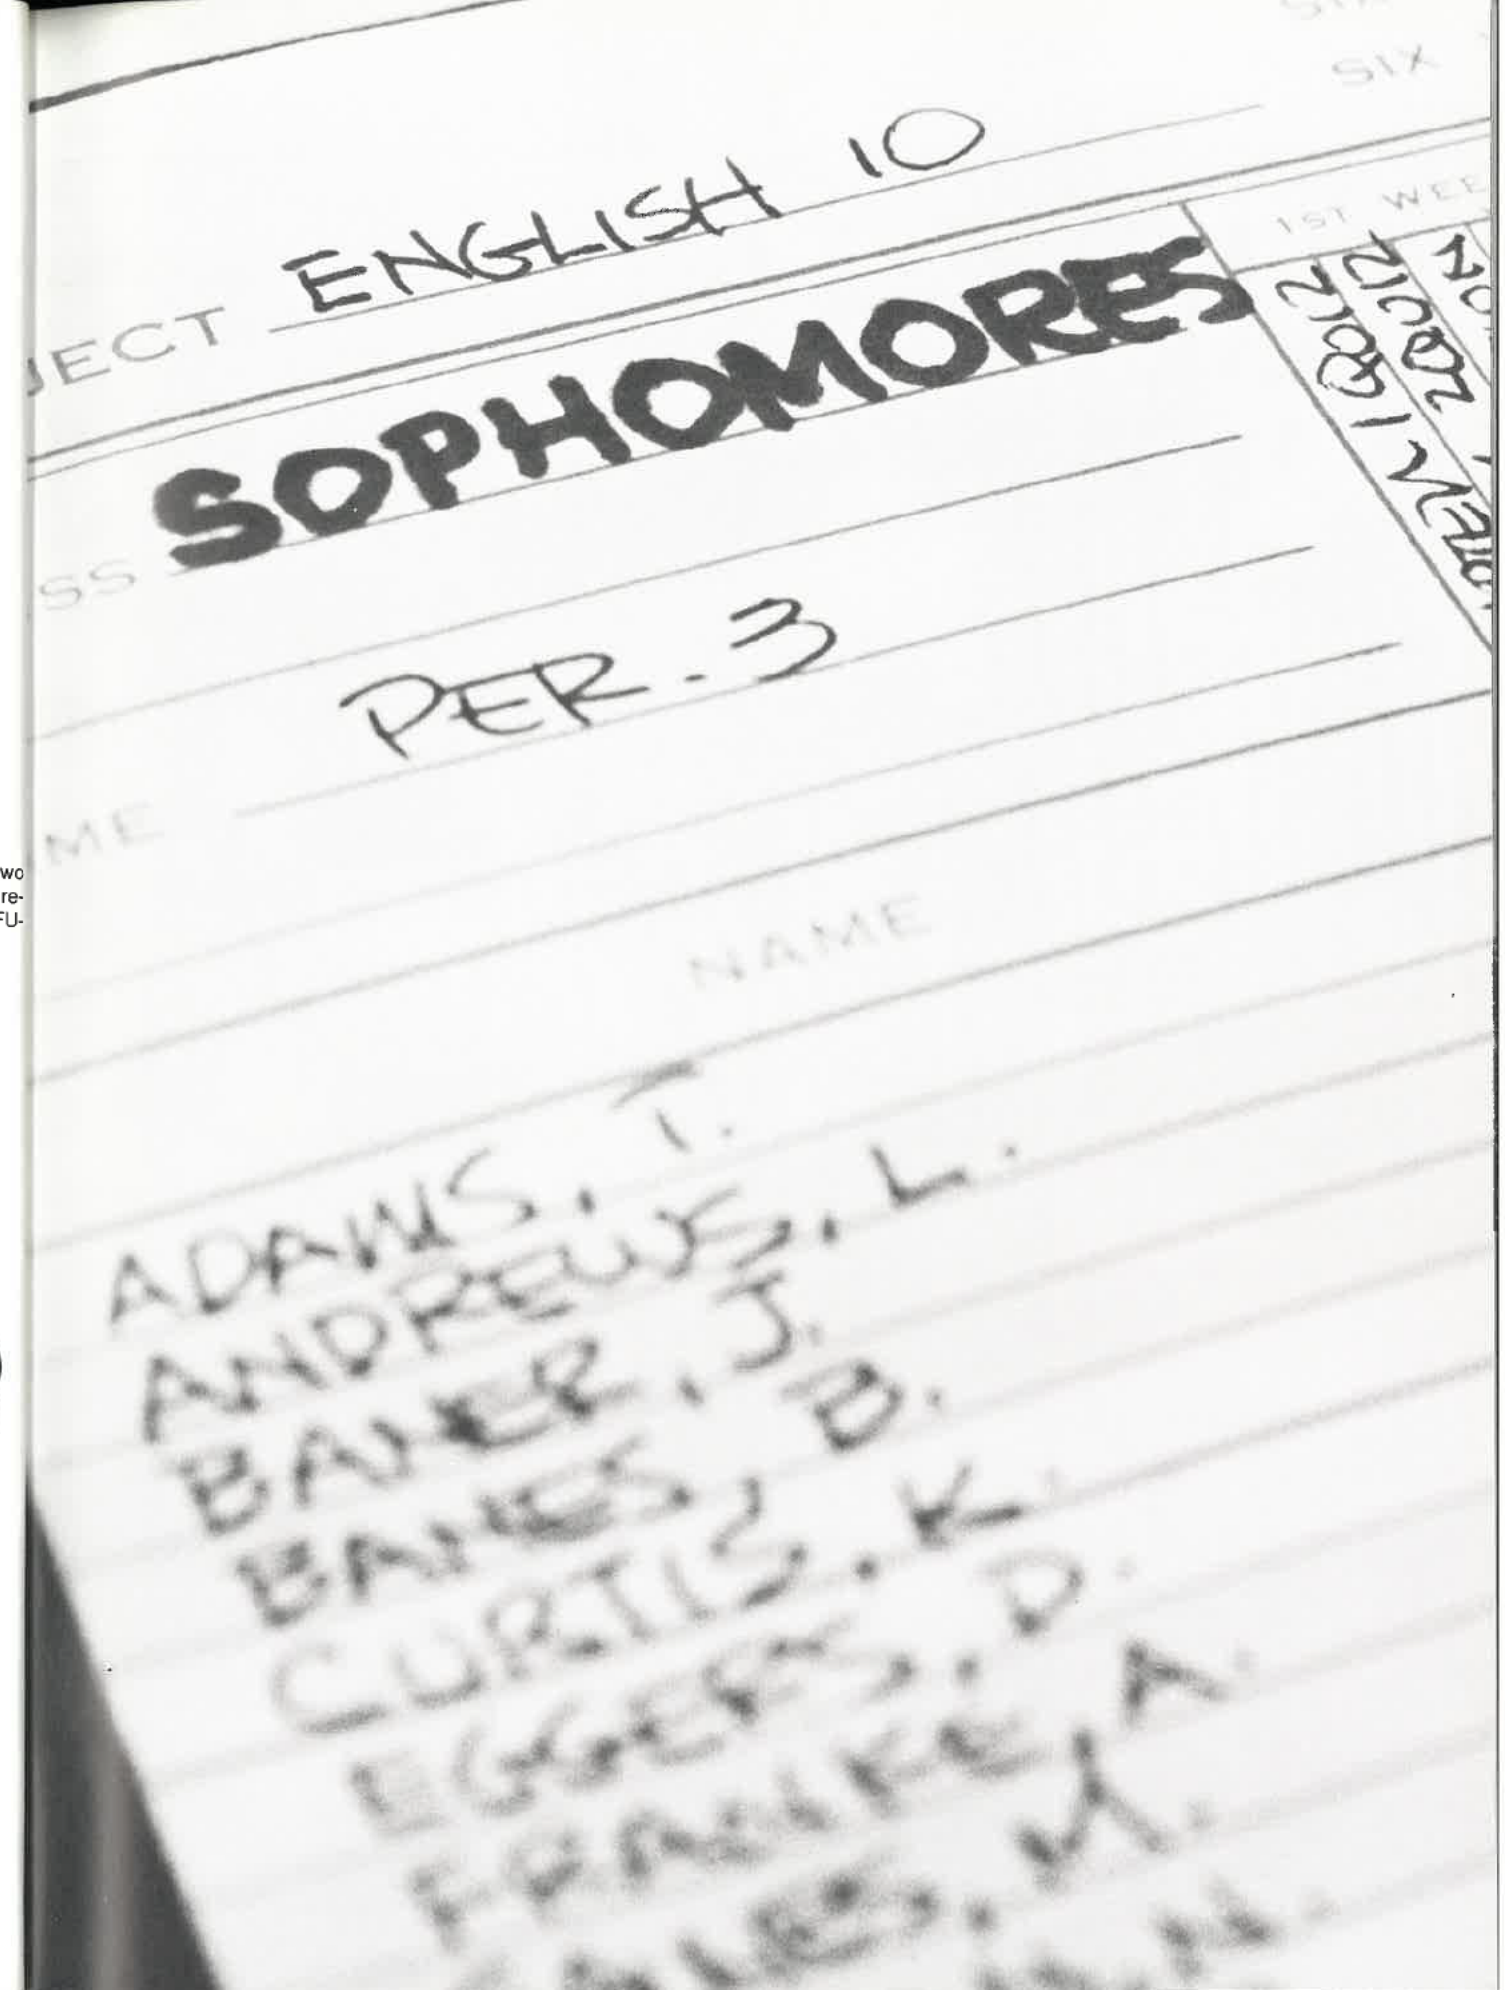 SIX
SIX
JECT ENGLISH 10
1ST WEE
SS SOPHOMORES
PER. 3
ME
wo
re-
FU-
NAME
ADAMS, T.
ANDREWS, L.
BAKER, J.
BANES, B.
CURTIS, K.
EGGERS, D.
FRANKE, A.
M.
N.